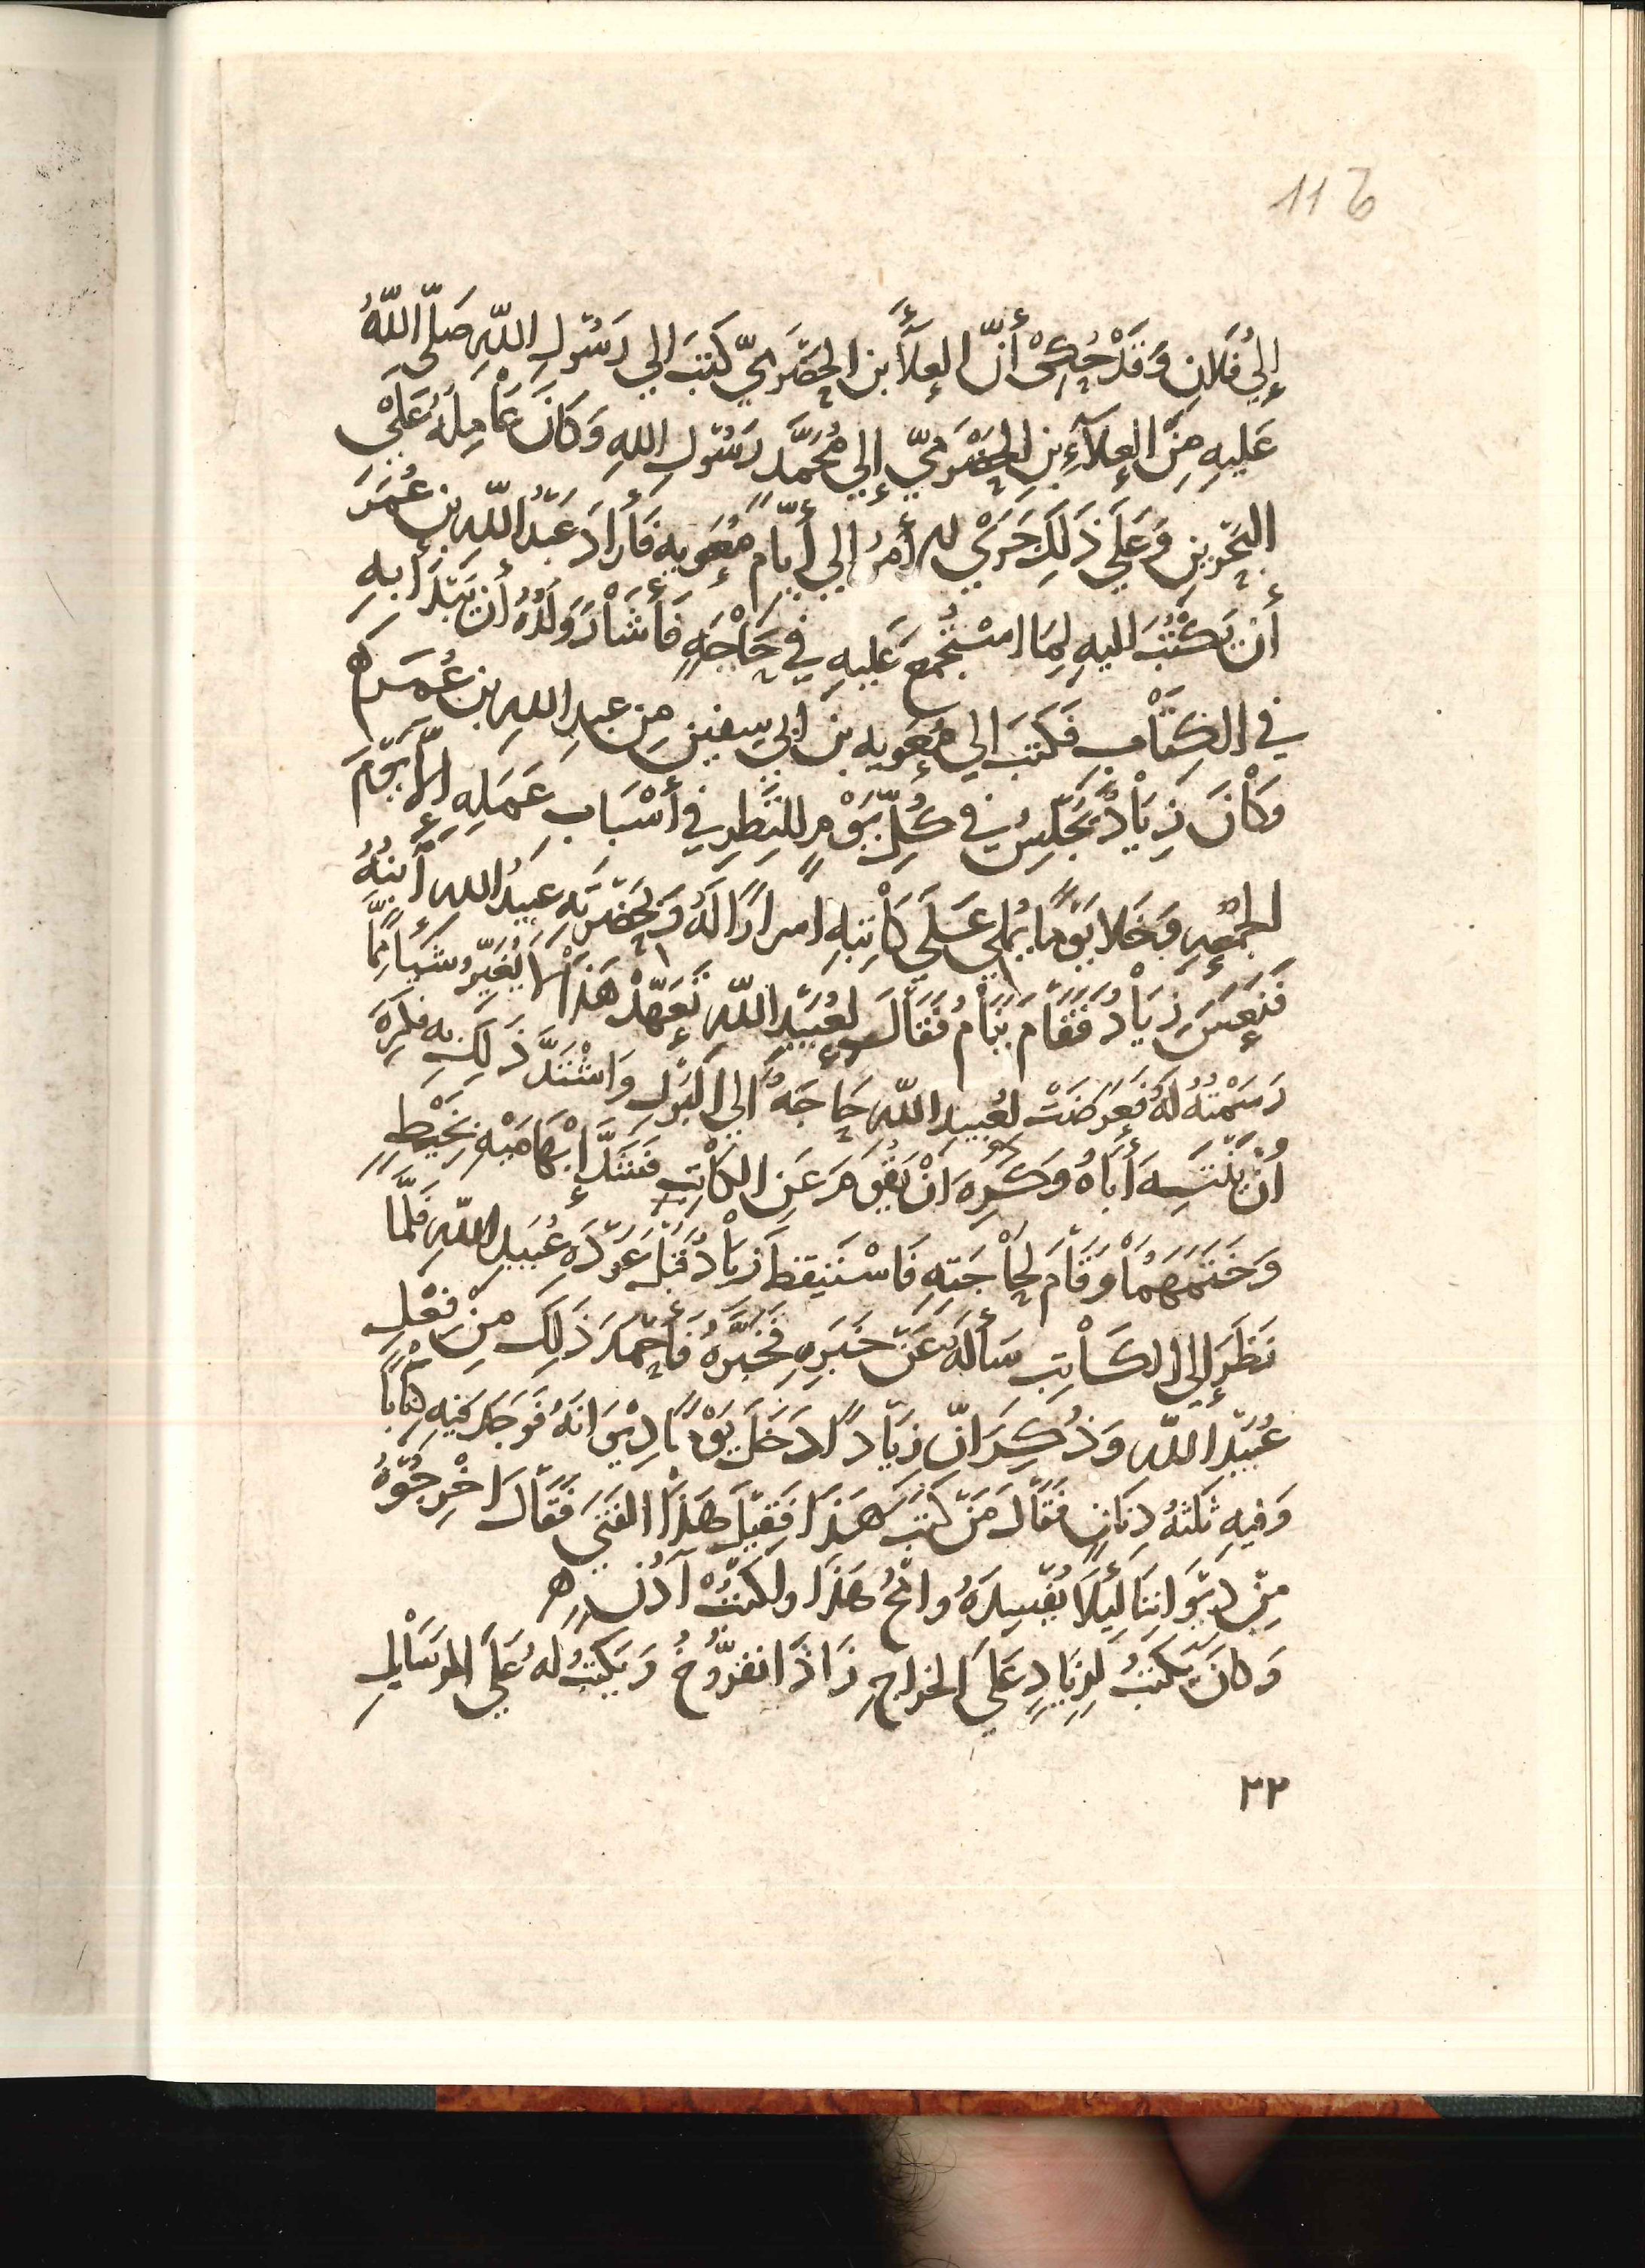 116
إلي فلان وقد حُكِي أنّ العلآء بن الحضرميّ كتب الي رسول اللّه صلّى اللّهُ
عليهِ مِن العلآءِ بنِ الحضرميّ إلي مُحمّد رسول الله وَكانَ عَامِلهُ عَلَى
البحرين وَعَلي ذَلِكَ جَرَي لـه أمرُ إلي أيّام مُعَويه فأراد عَبدُ اللّه بن عُمَرَ
أن يكتُبَ اليهِ لِمَا استُجمع عَليهِ في حَاجَهٍ فأشَارَ وَلَدُهُ أن يَبْتَدأ بهِ
في الكتاب فَكتبَ الي مُعَويه بن ابي سفين مِن عبدِ اللهِ بن عُمَر ه
وَكانَ زيادٌ يَجلِسُ في كُلّ يَوْمٍ للنّظرِ في أسْبَابِ عَمَلِهِ إلّا يَوْمَ
الجُمعهِ وَخَلا يَوْمًا يُملي عَلَي كاتبهِ اسرارًا لَهُ وَبحَضْرَتِهِ عبيدُ الله أبنُهُ
فنَعسَ زيادُ فَقَام يَنَامُ فَقالَ لِعُبَيْدِ اللّهِ تَعَهّدْ هَذا لا يُغيّرُ شيأ مِمّا
رَسمْتُهُ لهُ فعَرَضَتْ لعُبيدِ اللّهِ حَاجَهٌ الي البَوْلِ وَاشْتَدَّ ذَلِكَ بِهِ فكرِهَ
أنْ يُنَبِّهَ أباهُ وَكَرِهَ انْ يَقُومَ عَنِ الكاتِبِ فشَدَّ إبْهَامَيْهِ بخَيْطٍ
وَخَتَمَهُمَا وقَامَ لحاجَتِهِ فاسْتَيقظَ زيادُ قَبْلَ عَوْدَهِ عُبَيدِ اللّهِ فَلمَّا
نَظَرَ إلي الكاتِبِ سَألَهُ عَنْ خَبَرِهِ فَخَبَّرهُ فأحْمَدَ ذَلِكَ مِنْ فِعْلِ
عُبَيْدِ اللّهِ وَذُكِرَ انّ زيادًا دَخَلَ يَوْمًا دِيْوَانَهُ فَوَجَدَ فيهِ كِتابًا
وَفيهِ ثلثهُ دِنانٍ فقَالَ مَنْ كتَبَ هَذَا فَقيْلَ هَذَا الفَتَى فَقَالَ اخْرِجُوْهُ
مِنْ دِيْوَانِنَا لِئلَا يُفْسِدَهُ وامْحُ هَذَا واكتُبْ آدُن ه
وَكانَ يَكتبُ لِزيَادٍ عَلَي الخراجِ زَاذَانفرّوخُ وَيَكتبُ لهُ عَلَي الرسَائِلِ
٣٣